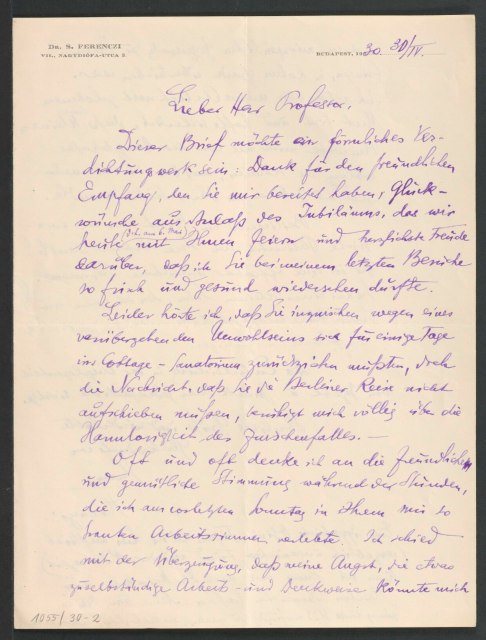 Dr. S. FERENCZI
VII., NAGYDIÓFA-UTCA 3.
BUDAPEST, 1930. 30/IV.
Lieber Herr Professor.
Dieser Brief möchte ein förmliches Ver-
dichtungswerk sein: Dank für den freundlichen
Empfang, den Sie mir bereitet haben, Glück-
wünsche aus Anlaß des Jubiläums, das wir
heute (d.h. am 6. Mai) mit Ihnen feiern und herzlichste Freude
darüber, daß ich Sie bei meinem letzten Besuche
so frisch und gesund wiedersehen durfte.
Leider höre ich, daß Sie inzwischen wegen eines
vorübergehenden Unwohlseins sich für einige Tage
ins Cottage-Sanatorium zurückziehen mußten, doch
die Nachricht, daß Sie die Berliner Reise nicht
aufschieben müssen, beruhigt mich völlig über die
Harmlosigkeit des Zwischenfalles. –
Oft und oft denke ich an die freundliche
und gemütliche Stimmung während der Stunden,
die ich am vorletzten Sonntag in Ihrem mir so
trauten Arbeitszimmer verlebte. Ich schied
mit der Überzeugung, daß meine Angst, die etwas
zu selbständige Arbeits- und Denkweise könnte mich
1055/30-2